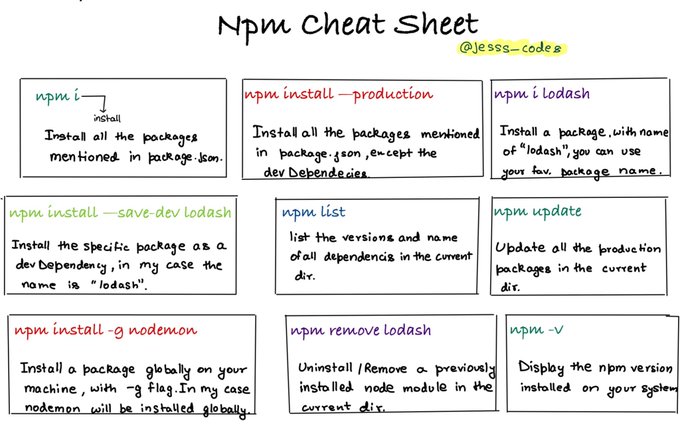 Npm Cheat Sheet
@jesss_codes
npm i
install
Install all the packages
mentioned in package.json.
npm install —production
Install all the packages mentioned
in package.json, except the
devDependecies.
npm i lodash
Install a package, with name
of "lodash", you can use
your fav. package name.
npm install —save-dev lodash
Install the specific package as a
devDependency, in my case the
name is "lodash".
npm list
list the versions and name
of all dependencis in the current
dir.
npm update
Update all the production
packages in the current
dir.
npm install -g nodemon
Install a package globally on your
machine, with -g flag. In my case
nodemon will be installed globally.
npm remove lodash
Uninstall/Remove a previously
installed node module in the
current dir.
npm -v
Display the npm version
installed on your system